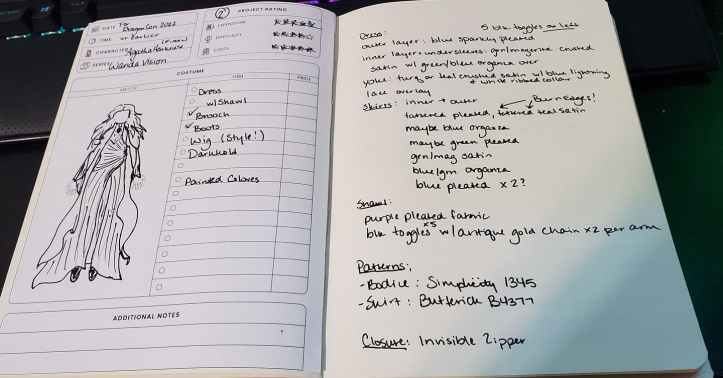 DATE For DragonCon 2022
TIME or Earlier
CHARACTER Agatha Harkness
SERIES WandaVision
2
PROJECT RATING
DIFFICULTY
COSTUME
ITEM
PRICE
Dress
w/ Shawl
Brooch
Boots
Wig (Style!)
Darkhold
Painted Gloves
ADDITIONAL NOTES
Dress: 5 blk toggles on left
outer layer: blue sparkly pleated
inner layer + undersleeves: grn/magenta crushed
satin w/ green/blue organza over
yoke: turq or teal crushed satin w/ blue lightning
+ white ribbed collar
lace overlay
Skirts: inner + outer Burn edges!
tattered pleated, tattered teal satin
maybe blue organza
maybe green pleated
grn/mag satin
blue/grn organza
blue pleated x 2?
Shawl:
purple pleated fabric
x5
blk toggles w/ antique gold chain x2 per arm
Patterns:
-Bodice: Simplicity 1345
-Skirt: Butterick B4377
Closure: Invisible Zipper